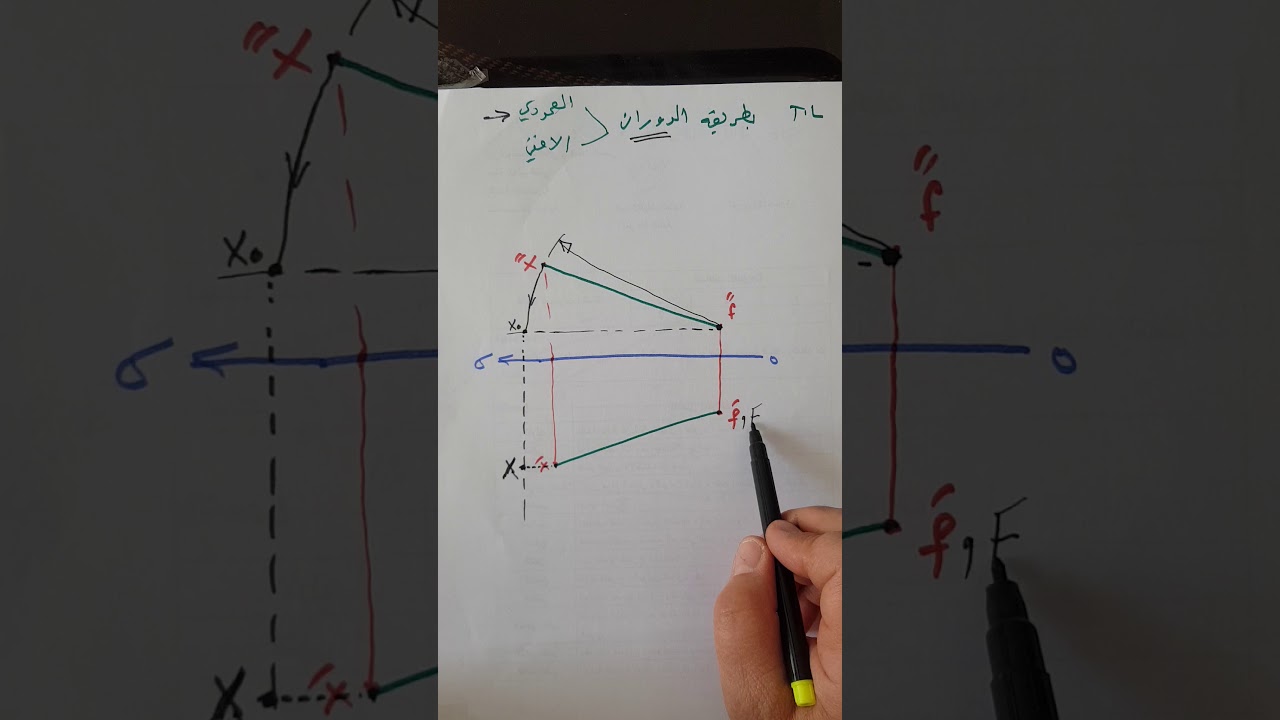 T.L بطريقه الدوران
العمودي
الافقي
x"
f"
x₀
σ
o
f', F
X
x'